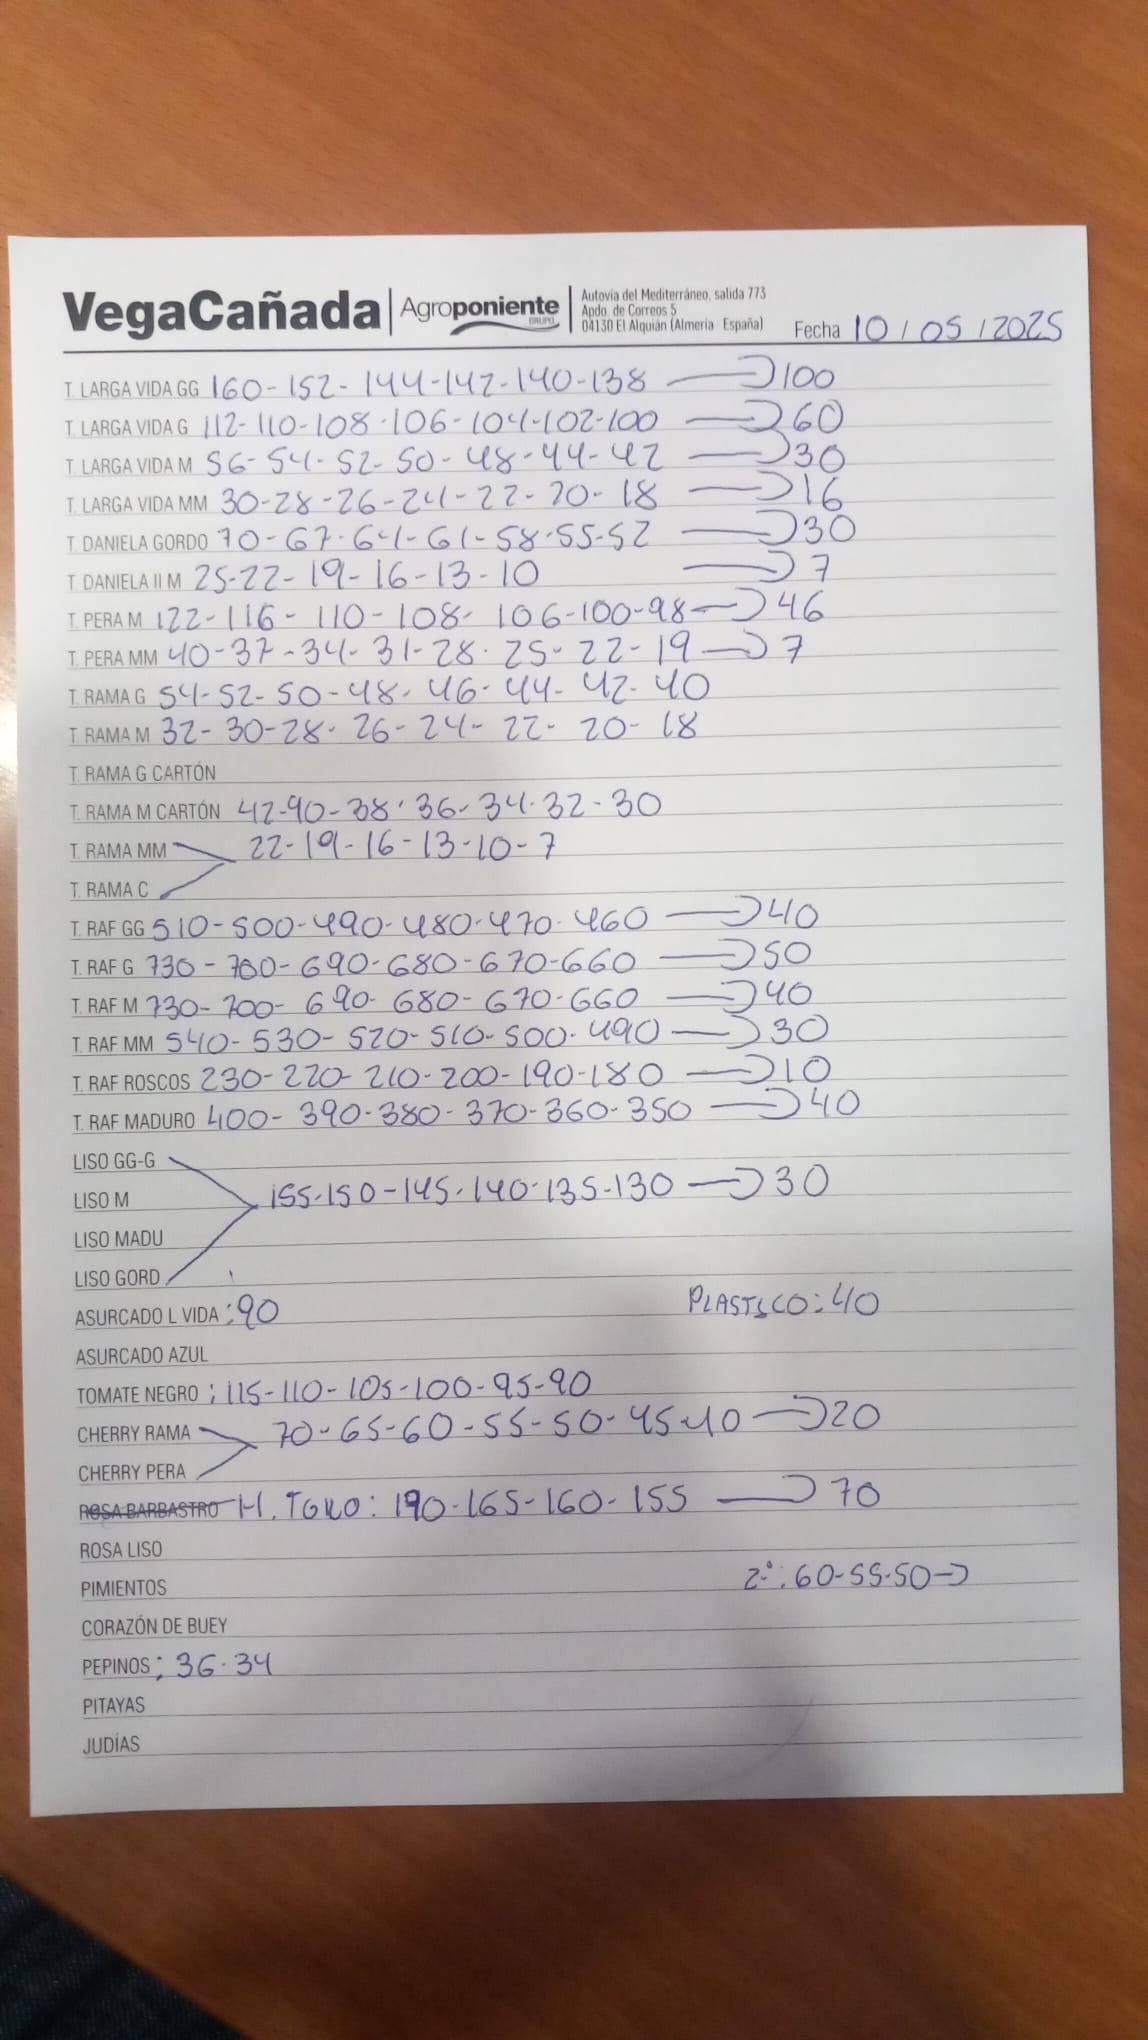 VegaCañada | Agroponiente GRUPO | Autovía del Mediterráneo, salida 773
Apdo. de Correos 5
04130 El Alquián (Almería - España)
Fecha 10/05/2025
T. LARGA VIDA GG 160-152-144-142-140-138 → 100
T. LARGA VIDA G 112-110-108-106-104-102-100 → 60
T. LARGA VIDA M 56-54-52-50-48-44-42 → 30
T. LARGA VIDA MM 30-28-26-24-22-20-18 → 16
T. DANIELA GORDO 70-67-64-61-58-55-52 → 30
T. DANIELA II M 25-22-19-16-13-10 → 7
T. PERA M 122-116-110-108-106-100-98 → 46
T. PERA MM 40-37-34-31-28-25-22-19 → 7
T. RAMA G 54-52-50-48-46-44-42-40
T. RAMA M 32-30-28-26-24-22-20-18
T. RAMA G CARTÓN
T. RAMA M CARTÓN 42-90-38-36-34-32-30
T. RAMA MM 22-19-16-13-10-7
T. RAMA C
T. RAF GG 510-500-490-480-470-460 → 40
T. RAF G 730-700-690-680-670-660 → 50
T. RAF M 730-700-690-680-670-660 → 40
T. RAF MM 540-530-520-510-500-490 → 30
T. RAF ROSCOS 230-220-210-200-190-180 → 10
T. RAF MADURO 400-390-380-370-360-350 → 40
LISO GG-G
LISO M 155-150-145-140-135-130 → 30
LISO MADU
LISO GORD
ASURCADO L VIDA :90 PLASTICO: 40
ASURCADO AZUL
TOMATE NEGRO : 115-110-105-100-95-90
CHERRY RAMA 70-65-60-55-50-45-40 → 20
CHERRY PERA
ROSA BARBASTRO H. TORO: 190-165-160-155 → 70
ROSA LISO
PIMIENTOS 2ª: 60-55-50 →
CORAZÓN DE BUEY
PEPINOS : 36-34
PITAYAS
JUDÍAS